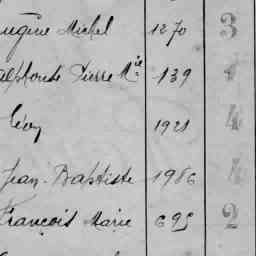 Eugène Michel 1270 3
Alphonse Pierre Mie 139 1
Léon 1921 4
Jean-Baptiste 1986 4
François Marie 695 2